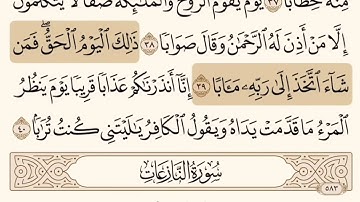 مِنْهُ خِطَابًا ٣٧ يَوْمَ يَقُومُ ٱلرُّوحُ وَٱلْمَلَٰٓئِكَةُ صَفًّا لَّا يَتَكَلَّمُونَ
إِلَّا مَنْ أَذِنَ لَهُ ٱلرَّحْمَٰنُ وَقَالَ صَوَابًا ٣٨ ذَٰلِكَ ٱلْيَوْمُ ٱلْحَقُّ ۖ فَمَن
شَآءَ ٱتَّخَذَ إِلَىٰ رَبِّهِۦ مَـَٔابًا ٣٩ إِنَّآ أَنذَرْنَٰكُمْ عَذَابًا قَرِيبًا يَوْمَ يَنظُرُ
ٱلْمَرْءُ مَا قَدَّمَتْ يَدَاهُ وَيَقُولُ ٱلْكَافِرُ يَٰلَيْتَنِى كُنتُ تُرَٰبًۢا ٤٠
سُورَةُ النَّازِعَاتِ
٥٨٣